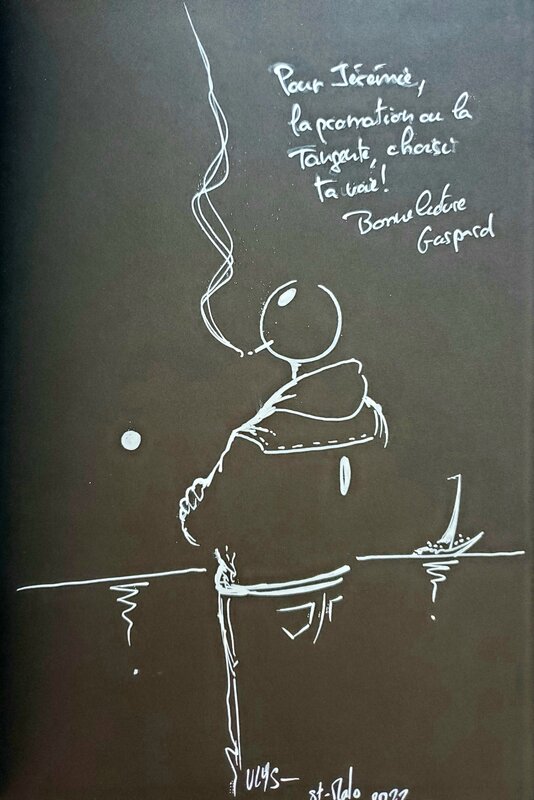 Pour Jérémie,
la promotion ou la
Tangente, choisir
ta voie!
Bonne lecture
Gaspard
ULYS
St-Malo 2022